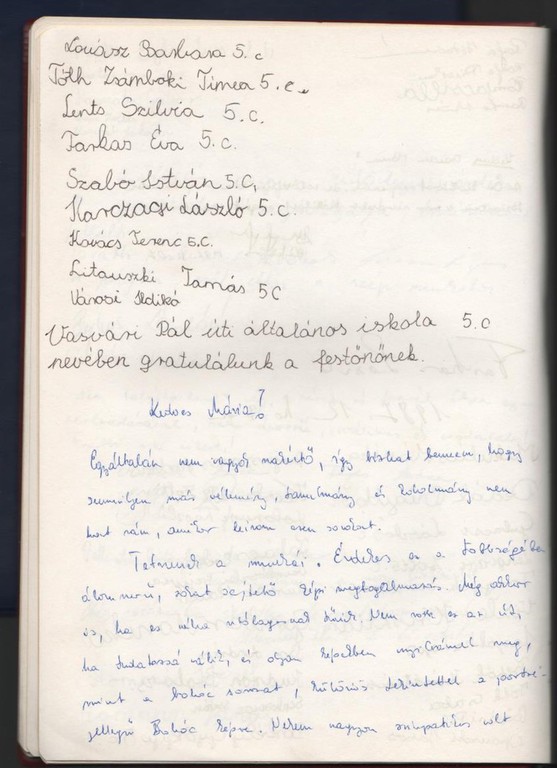 Loviász Barbara 5. c
Tóth Zsámboki Tímea 5. c.
Lents Szilvia 5.C.
Farkas Éva 5. c.
Szabó István 5.C,
Karczagi László 5. c.
Kovács Ferenc 5.C.
Litauszki Tamás 5C
Városi Ildikó
Vasvári Pál úti általános iskola 5.c
nevében gratulálunk a festőnőnek.
Kedves Mária!
Egyáltalán nem vagyok műértő, így bízhat bennem, hogy
semmilyen más vélemény, tanulmány és tudomány nem
hat rám, amikor leírom ezen sorokat.
Tetszenek a munkái. Érdekes ez a többrépű
álomszerű, sokat sejtető képi megfogalmazás. Még akkor
is, ha ez néha utólagosnak tűnik. Nem rossz ez az út,
ha tudatossá válik, és olyan képekben nyilvánul meg,
mint a bohóc sorozat, különös tekintettel a portré-
jellegű Bohóc képre. Nekem nagyon szimpatikus volt